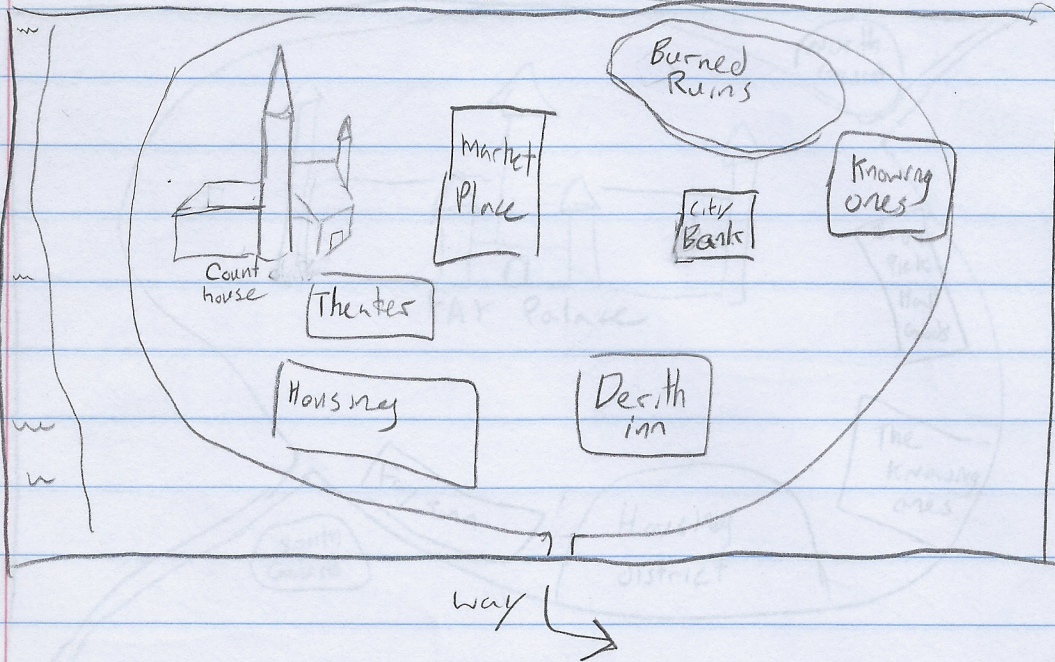 Burned
Ruins
Market
Place
Knowing
ones
City
Bank
Count
house
Theater
Housing
Derith
inn
way